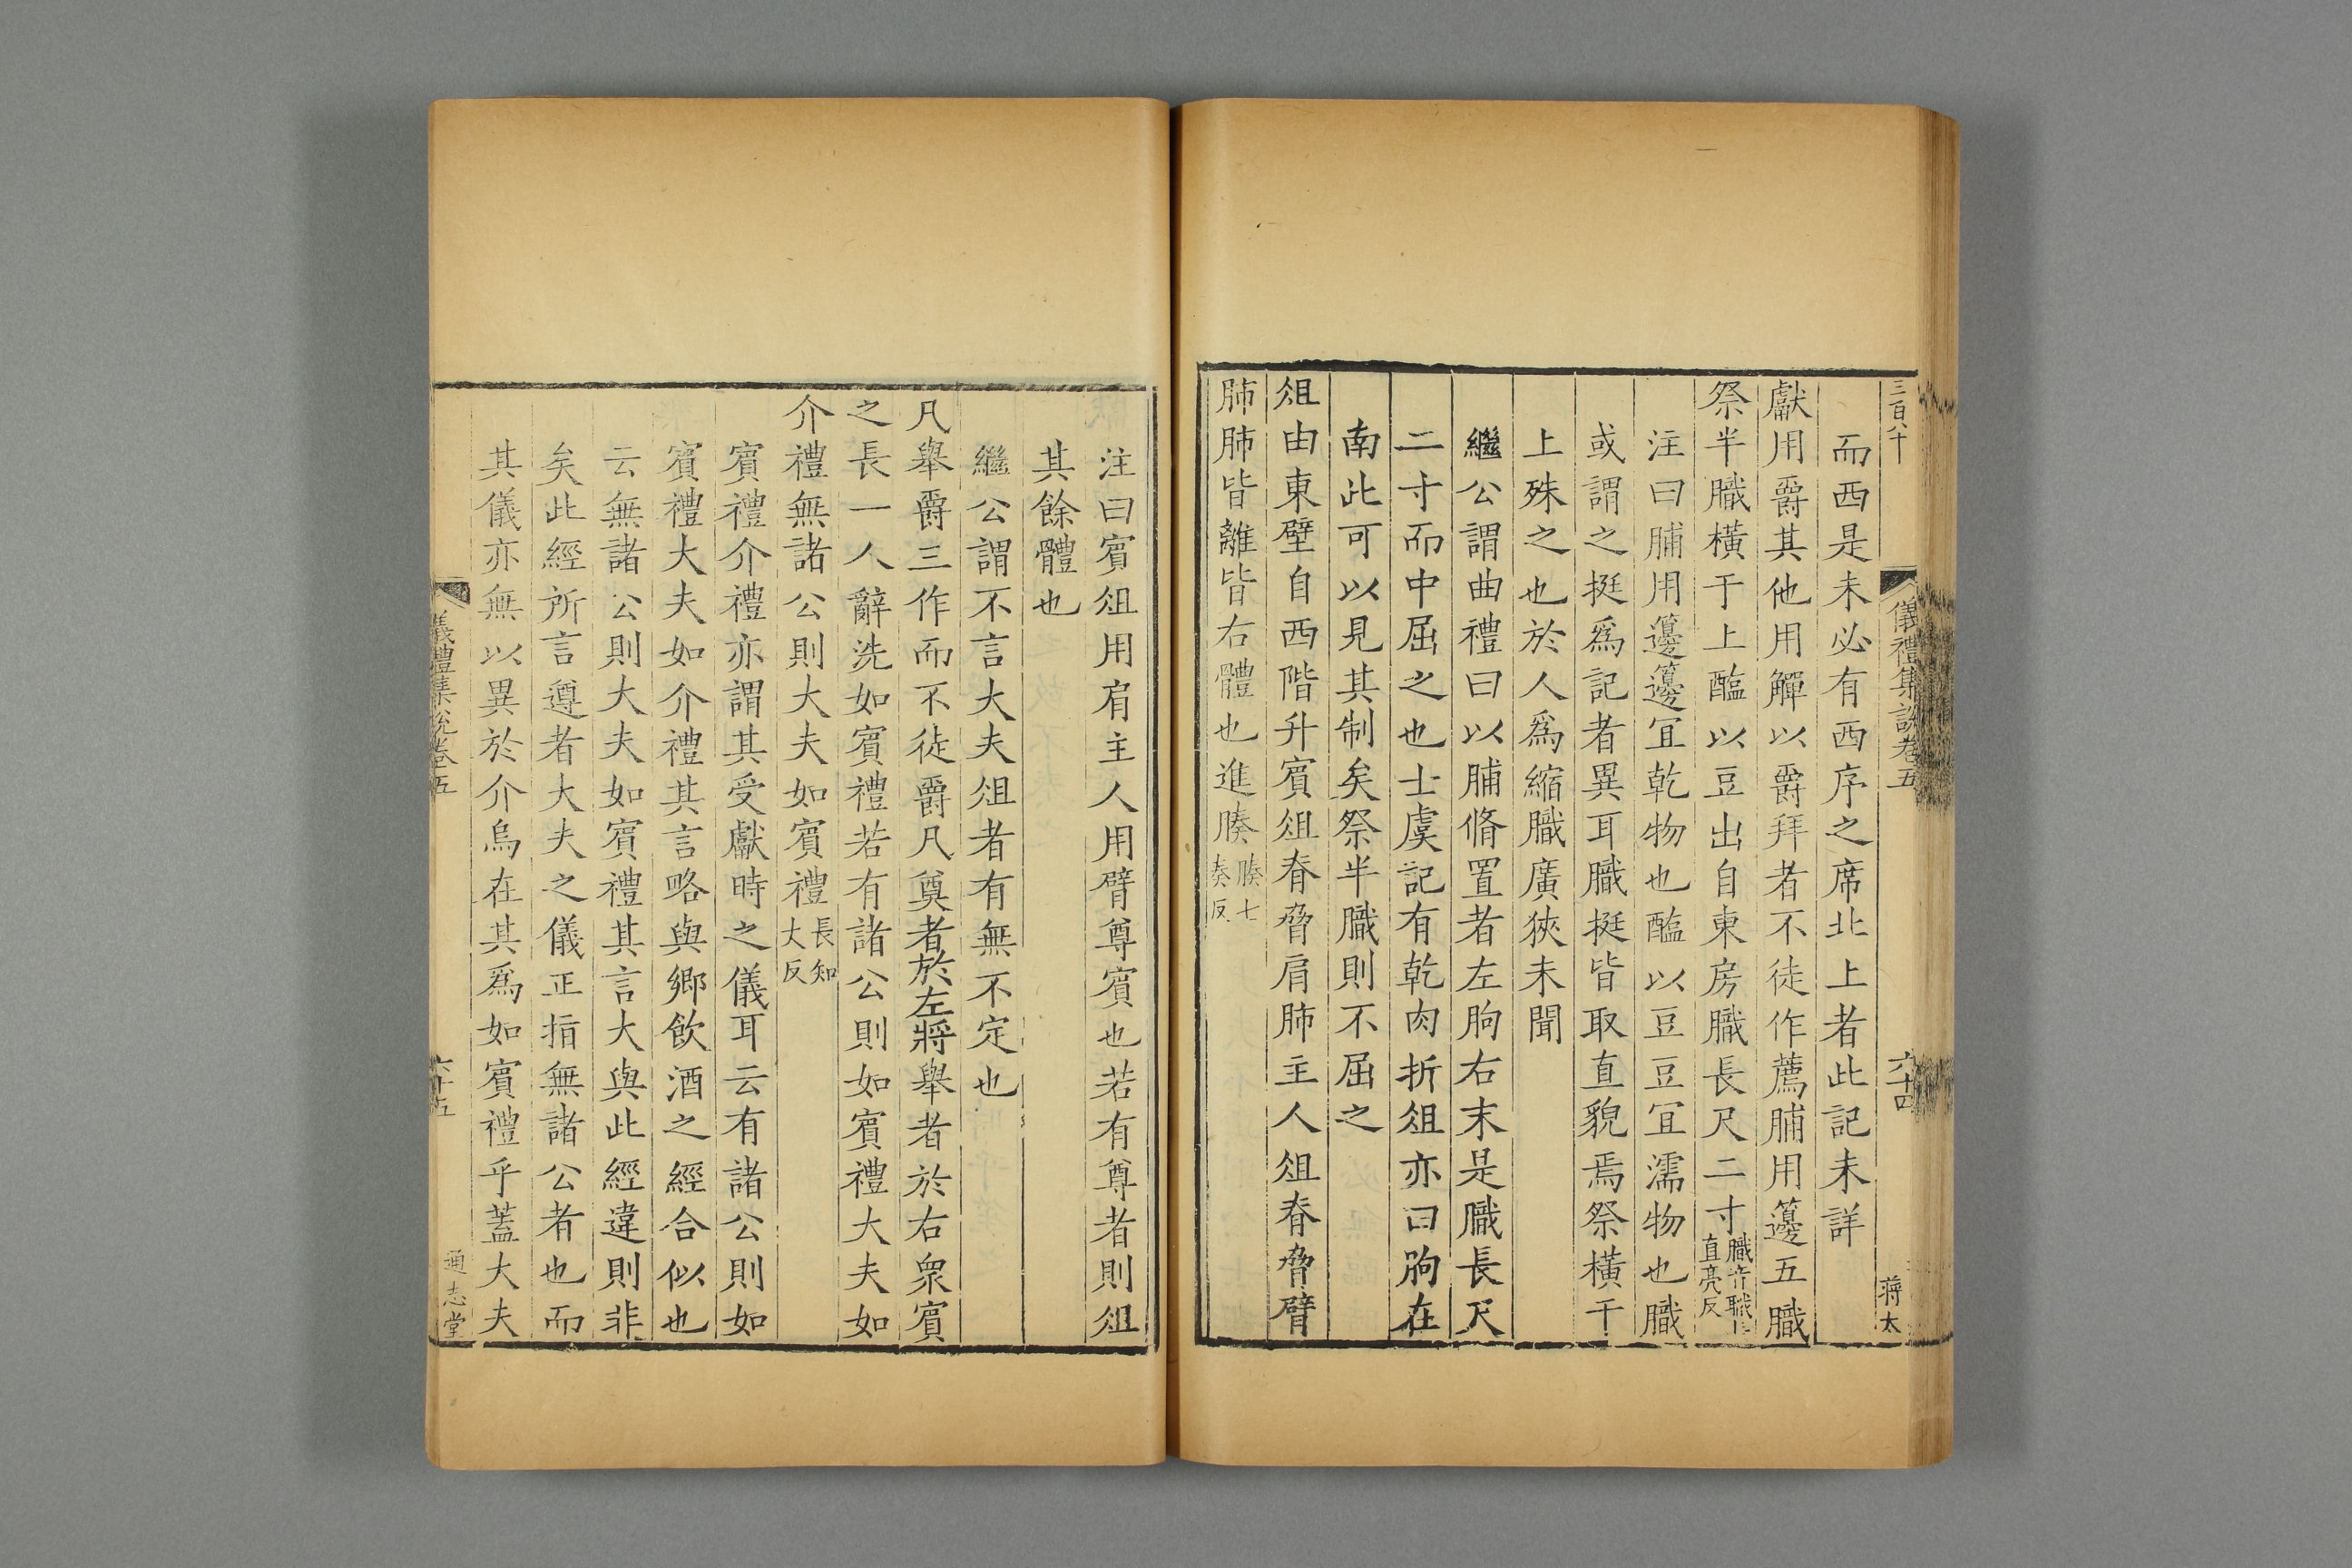 三百八十
儀禮集說卷五
六十四
蔣太
而西是未必有西序之席北上者此記未詳
獻用爵其他用觶以爵拜者不徒作薦脯用籩五膱
祭半膱橫于上醢以豆出自東房膱長尺二寸膱音職長直亮反
注曰脯用籩籩宜乾物也醢以豆豆宜濡物也膱
或謂之挺爲記者異耳膱挺皆取直貌焉祭橫于
上殊之也於人爲縮膱廣狹未聞
繼公謂曲禮曰以脯脩置者左朐右末是膱長尺
二寸而中屈之也士虞記有乾肉折俎亦曰朐在
南此可以見其制矣祭半膱則不屈之
俎由東壁自西階升賓俎脊脅肩肺主人俎脊脅臂
肺肺皆離皆右體也進腠腠七奏反
注曰賓俎用肩主人用臂尊賓也若有尊者則俎
其餘體也
繼公謂不言大夫俎者有無不定也
凡舉爵三作而不徒爵凡奠者於左將舉者於右衆賓
之長一人辭洗如賓禮若有諸公則如賓禮大夫如
介禮無諸公則大夫如賓禮長知大反
賓禮介禮亦謂其受獻時之儀耳云有諸公則如
賓禮大夫如介禮其言略與鄉飲酒之經合似也
云無諸公則大夫如賓禮其言大與此經違則非
矣此經所言遵者大夫之儀正指無諸公者也而
其儀亦無以異於介烏在其爲如賓禮乎蓋大夫
儀禮集說卷五
六十五
通志堂